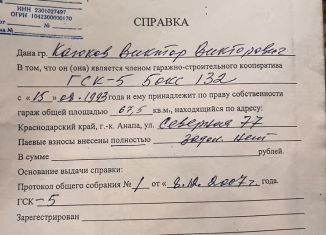 ИНН 2301027497
ОГРН 1042300000170
СПРАВКА
Дана гр. Каюков Виктор Викторович
В том, что он (она) является членом гаражно-строительного кооператива
ГСК-5 Бокс 132
с «15» 09.1993 года и ему принадлежит по праву собственности
гараж общей площадью 67,5 кв.м., находящийся по адресу:
Краснодарский край, г.-к. Анапа, ул. Северная 77
Паевые взносы внесены полностью Задол нет
В сумме рублей.
Основание выдачи справки:
Протокол общего собрания № 1 от « 8.12.2007 г. года.
ГСК-5
Зарегистрирован